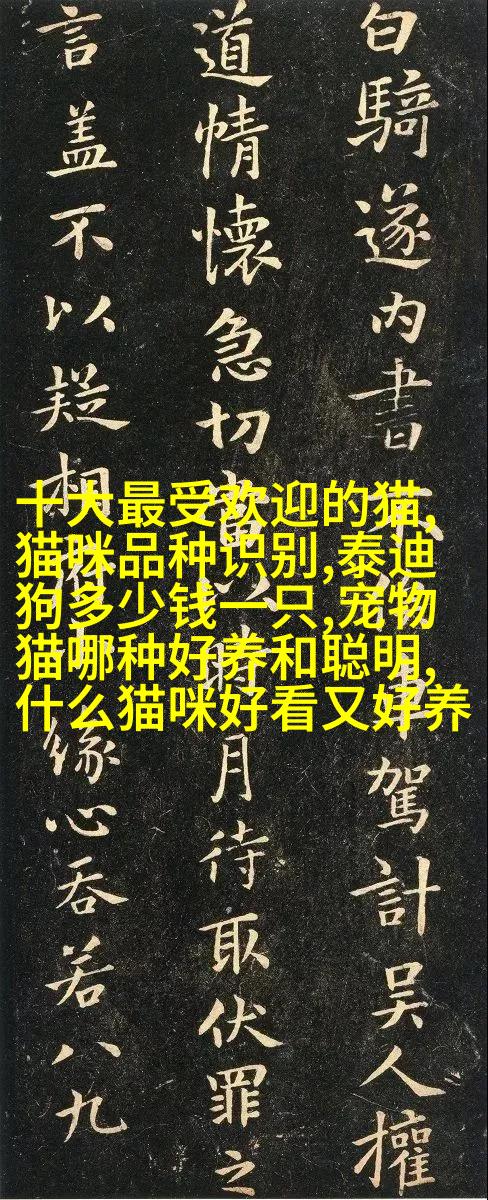 白騎遂内書不車駕計吴人權
道情懷急切當以時月待取伏罪之
言盖不以疑相緣心吞若八九
十大最受欢迎的猫,
猫咪品种识别,泰迪
狗多少钱一只,宠物
猫哪种好养和聪明,
什么猫咪好看又好养